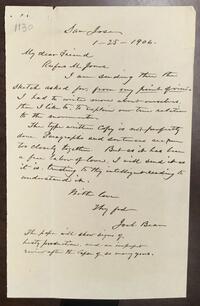 1130
San Jose
1-25-1904.
My dear Friend
Rufus M. Jones
I am sending thee the
Sketch asked for, from my point given.
I had to write more about ourselves
than I like to, to explain our true relation
to the movement.
The type written Copy is not properly
done. Paragraphs and sentences are run
too closely together. But as it has been
a free labor of love, I will send it as
it is, trusting to thy intelligent reading to
understand it.
With love
Thy frd.
Joel Bean
The paper will show signs of
hasty production, and an imperfect
review after the lapse of so many years.